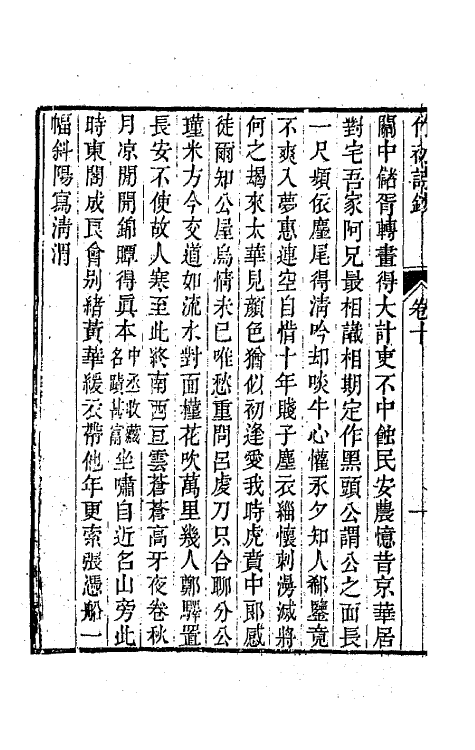 竹初詩鈔 卷十 十
關中儲胥轉畫得大計吏不中蝕民安農憶昔京華居
對宅吾家阿兄最相識相期定作黑頭公謂公之面長
一尺頻依麈尾得淸吟却啖牛心懽永夕知人郗鑒竟
不爽入夢惠連空自惜十年賤子塵衣緇懷刺漫滅將
何之朅來太華見顔色猶似初逢愛我時虎賁中郞感
徒爾知公屋烏情未已唯愁重問呂虔刀只合聊分公
瑾米方今交道如流水對面槿花吹萬里幾人鄭驛置
長安不使故人寒至此終南西亘雲蒼蒼高牙夜卷秋
月凉閒開錦贉得眞本中丞收藏名蹟甚富坐嘯自近名山旁此
時東閣成良會別緒黃華緩衣帶他年更索張憑船一
幅斜陽寫淸渭